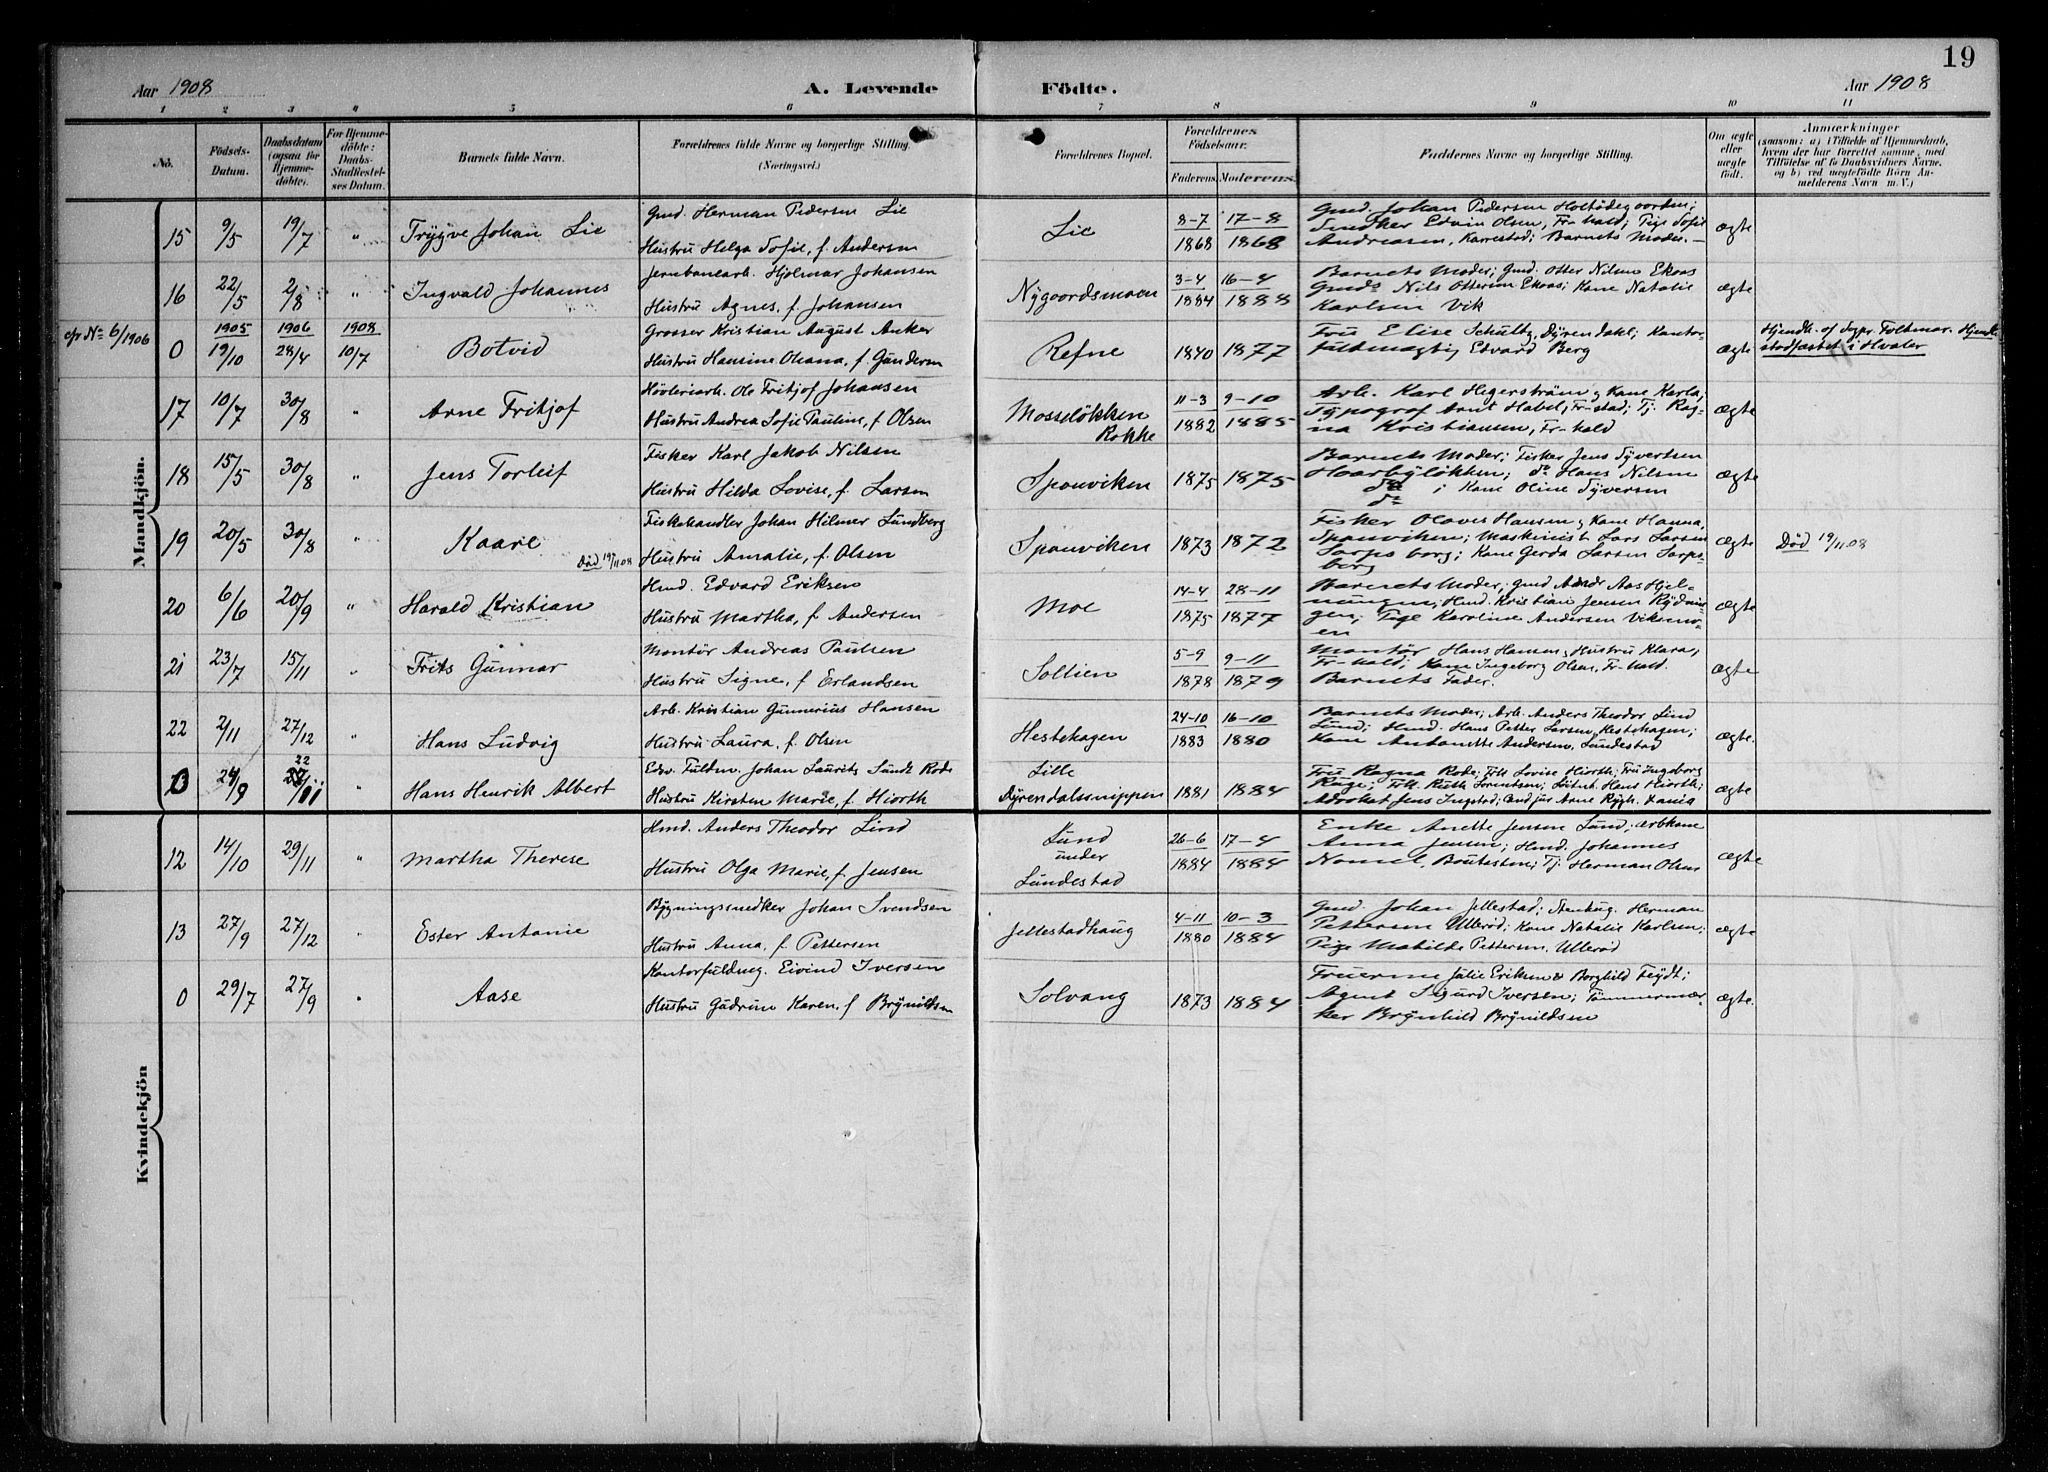 19
Aar 1908 A. Levende Födte. Aar 1908
1 2 3 4 5 6 7 8 9 10 11
No.
Födsels-Datum.
Daabsdatum (ogsaa for Hjemme-döbte).
For Hjemme-döbte: Daabs-Stadfæstel-ses Datum.
Barnets fulde Navn.
Forældrenes fulde Navne og borgerlige Stilling. (Næringsvei.)
Forældrenes Bopæl.
Forældrenes Födselsaar.
Faderens. Moderens.
Faddernes Navne og borgerlige Stilling.
Om ægte eller uægte födt.
Anmærkninger
(saasom: a) i Tilfælde af Hjemmedaab, hvem der har forrettet samme, med Tilföielse af to Daabsvidners Navne, og b) ved uægtefödte Börn An-melderens Navn m. V.)
Mandkjön.
15 9/5 19/7 " Trygve Johan Lie
Gmd. Herman Pedersen Lie
Hustru Helga Sofie, f. Andersen
Lie 8-7 1868 17-8 1868
Gmd. Johan Pedersen Holtödegaarden;
Snedker Edvin Olsen, Fr-hald; Pige Sofie
Andreasen, Karrestad; Barnets Moder.
ægte
16 22/5 2/8 " Ingvald Johannes
Jernbanearb. Hjalmar Johansen
Hustru Agnes, f. Johansen
Nygaardsmoen 3-4 1884 16-4 1888
Barnets Moder; Gmd. Otter Nilsen Ekaas
Gmds Nils Ottersen Ekaas; Kone Natalie
Karlsen Vik
ægte
cfr No 6/1906
0 1905 19/10 1906 28/4 1908 10/7 Botvid
Grosser Kristian August Anker
Hustru Hansine Oleana, f. Gundersen
Refne 1840 1877
Fru Elise Schultz, Dyrendahl; Kontor-
fuldmægtig Edvard Berg
ægte
Hjemdb. af Sogpr. Foltmar. Hjemdb
stadfæstet i Hvaler
17 10/7 30/8 " Arne Fritjof
Høvleriarb. Ole Fritjof Johansen
Hustru Andrea Sofie Pauline, f. Olsen
Mosseløkken
Rokke
11-3 1882 9-10 1885
Arb. Karl Hegerstrøm & Kone Karla;
Typograf Arnt Habel, Fr-stad; Tj. Rag-
na Kristiansen, Fr-hald
ægte
18 15/5 30/8 " Jens Torleif
Fisker Karl Jakob Nilsen
Hustru Hilda Lovise, f. Larsen
Sponviken 1875 1875
Barnets Moder; Fisker Jens Syversen
Haarbyløkken; do Hans Nilsen
do; Kone Oline Syversen
do
ægte
19 20/5 30/8 " Kaare
Død 19/11 08
Fiskehandler Johan Hilmer Lundberg
Hustru Amalie, f. Olsen
Sponviken 1873 1872
Fisker Olaves Hansen & Kone Hanna,
Sponviken; Maskinist Lars Larsen
Sarpsborg; Kone Gerda Larsen Sarps-
borg
ægte
Død 19/11 08
20 6/6 20/9 " Harald Kristian
Hmd. Edvard Eriksen
Hustru Martha, f. Andersen
Moe 14-4 1875 28-11 1877
Barnets Moder; Gmd Aas Hjel-
mungen; Hmd. Kristian Jensen Rydnin-
gen; Pige Karoline Andersen Viksmo-
en
ægte
21 23/7 15/11 " Frits Gunnar
Montør Andreas Paulsen
Hustru Signe, f. Erlandsen
Soltien 5-9 1878 9-11 1879
Montør Hans Hansen & Hustru Klara,
Fr-hald; Kone Ingeborg Olsen, Fr-hald.
Barnets Fader.
ægte
22 2/11 27/12 " Hans Ludvig
Arb. Kristian Gunnerius Hansen
Hustru Laura, f. Olsen
Hestehagen 24-10 1883 16-10 1880
Barnets Moder; Arb. Anders Theodor Lind
Lund; Hmd. Hans Petter Larsen, Hestehagen;
Kone Antonette Andersen, Lundestad
ægte.
0 24/9 22/11 " Hans Henrik Albert
Edsv. Fuldm. Johan Laurits Sundt Rode
Hustru Kirsten Marie, f. Hiorth
Lille
Dyrendalssnippen
1881 1884
Fru Ragna Rode; Frk Lovise Hiorth; Fru Ingeborg
Ruge; Frk. Ruth Sorentsen; Löitn. Hans Hiorth;
Advokat Jens Ingstad; Cand jur Arne Rygh
ægte
Kvindekjön
12 14/10 29/11 " Martha Therese
Hmd. Anders Theodor Lind
Hustru Olga Marie, f. Jensen
Lund
under
Lundestad
26-6 1884 17-4 1884
Enke Anette Jensen Lund; Arbkone
Anna Jensen; Hmd. Johannes
Tj. Herman Olsen
ægte
13 27/9 27/12 " Ester Antonie
Bygningssnedker Johan Svendsen
Hustru Anna, f. Pettersen
Jellestadhaug 4-11 1880 10-3 1884
Gmd. Johan Jellestad; Stenhug. Herman
Pettersen Ulleröd; Kone Natalie Karlsen;
Pige Mathilde Pettersen, Ulleröd
ægte
0 29/7 27/9 " Aase
Kontorfuldmg. Eivind Iversen
Hustru Gudrun Karen, f. Brynildsen
Solvang 1873 1884
Fruerne Julie Eriksen & Borghild Feydt;
Agent Sigurd Iversen; Tømmermær-
ker Brynhild Brynildsen
ægte.